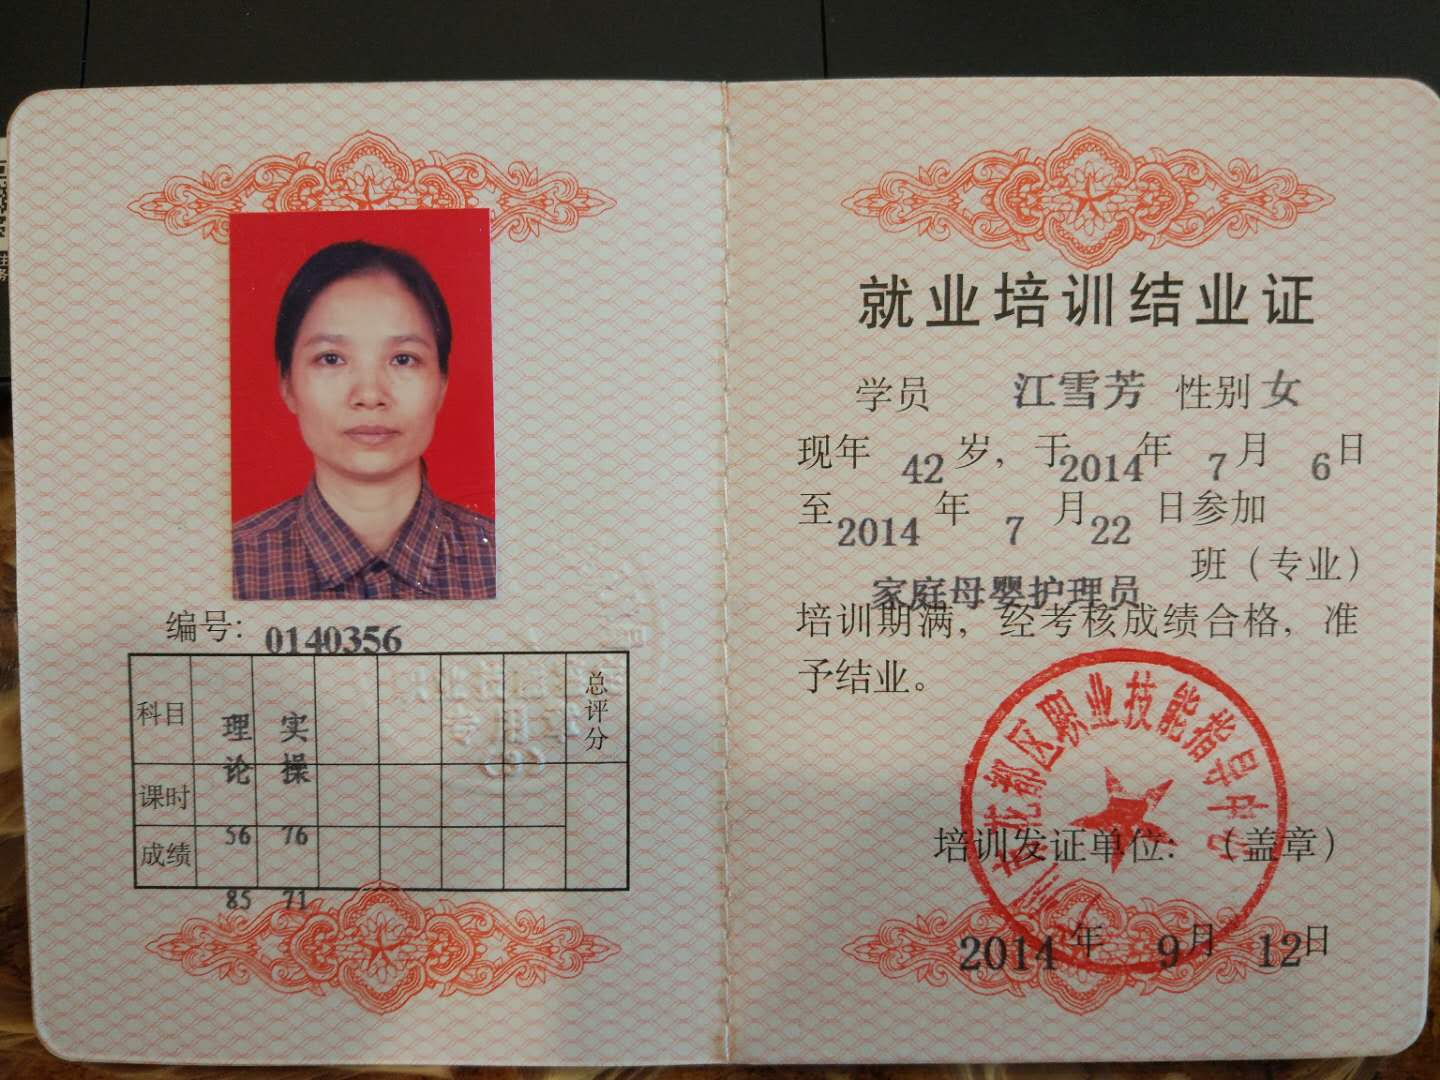 编号：0140356
科目 理论 实操 总评分
课时 56 76
成绩 85 71
就业培训结业证
学员 江雪芳 性别 女
现年 42 岁，于2014年 7 月 6 日
至2014 年 7 月22 日参加
家庭母婴护理员 班（专业）
培训期满，经考核成绩合格，准
予结业。
花都区职业技能指导中心
培训发证单位：（盖章）
2014 年 9月 12日